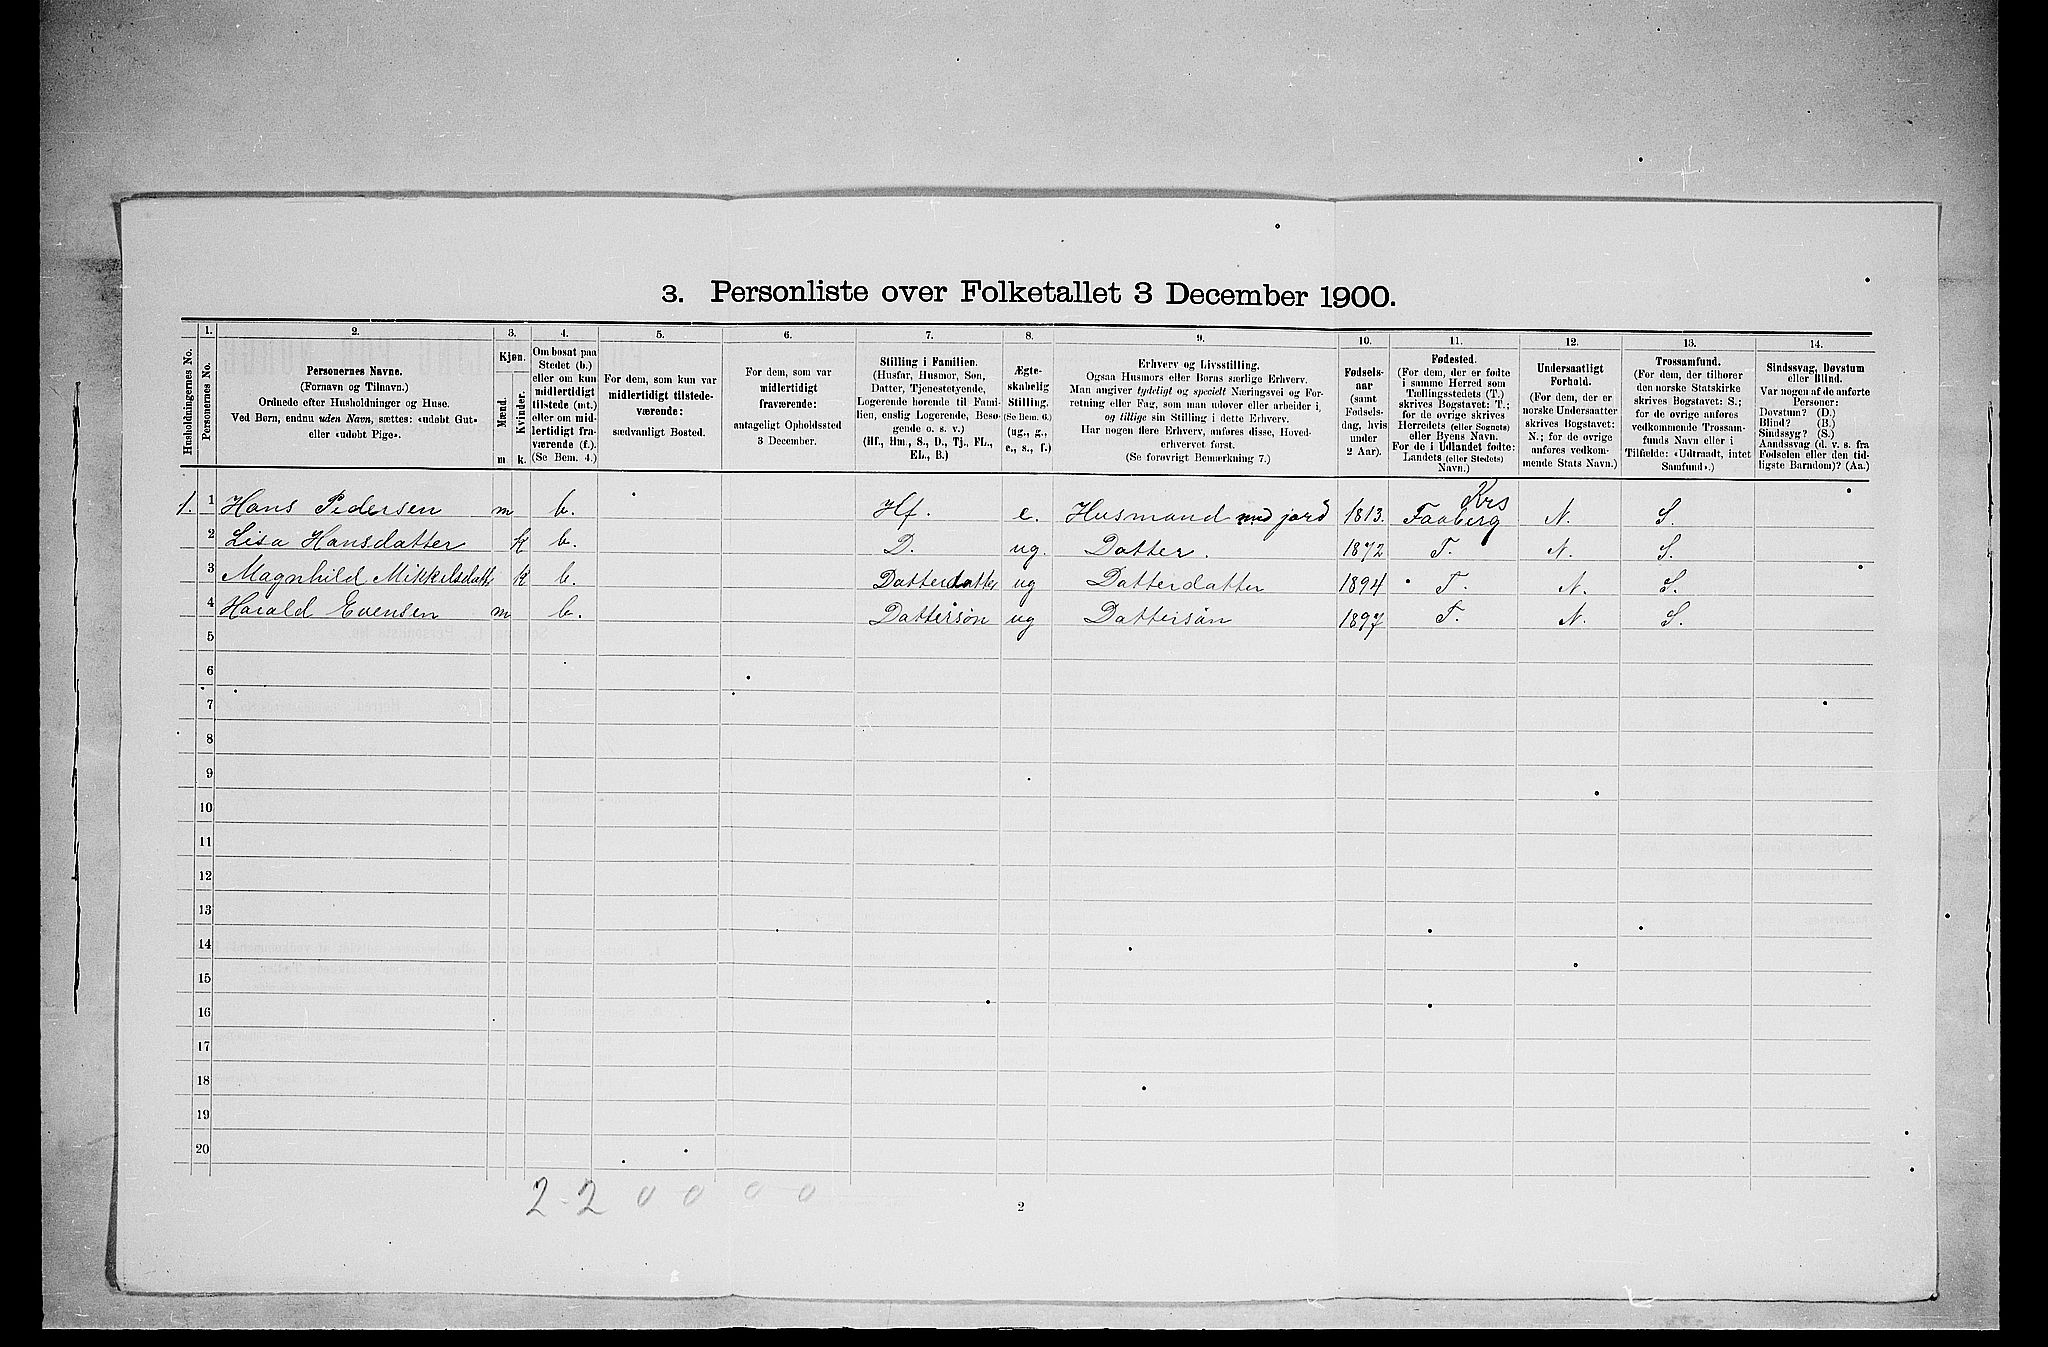 3. Personliste over Folketallet 3 December 1900.
1. 2. 3. 4. 5. 6. 7. 8. 9. 10. 11. 12. 13. 14.
Husholdningernes No.
Personernes No.
Personernes Navne.
(Fornavn og Tilnavn.)
Ordnede efter Husholdninger og Huse.
Ved Børn, endnu uden Navn, sættes: «udøbt Gut»
eller «udøbt Pige».
Kjøn.
Mænd.
Kvinder.
m k.
Om bosat paa
Stedet (b.)
eller om kun
midlertidigt
tilstede (mt.)
eller om mid-
lertidigt fra-
værende (f.).
(Se Bem. 4.)
For dem, som kun var
midlertidigt tilstede-
værende:
sædvanligt Bosted.
For dem, som var
midlertidigt
fraværende:
antageligt Opholdssted
3 December.
Stilling i Familien.
(Husfar, Husmor, Søn,
Datter, Tjenestetyende,
Logerende hørende til Fami-
lien, enslig Logerende, Besø-
gende o. s. v.)
(Hf., Hm., S., D., Tj., FL.,
EL., B.)
Ægte-
skabelig
Stilling.
(Se Bem. 6.)
(ug., g.,
e., s., f.)
Erhverv og Livsstilling.
Ogsaa Husmors eller Børns særlige Erhverv.
Man angiver tydeligt og specielt Næringsvei og For-
retning eller Fag, som man udover eller arbeider i,
og tillige sin Stilling i dette Erhverv.
Har nogen flere Erhverv, anføres disse, Hoved-
erhvervet først.
(Se forøvrigt Bemærkning 7.)
Fødsels-
aar
(samt
Fødsels-
dag, hvis
under
2 Aar).
Fødested.
(For dem, der er fødte
i samme Herred som
Tællingsstedets (T.)
skrives Bogstavet: T.;
for de øvrige skrives
Herredets (eller Sognets)
eller Byens Navn.
For de i Udlandet fødte:
Landets (eller Stedets)
Navn.)
Undersaatligt
Forhold.
(For dem, der er
norske Undersaatter
skrives Bogstavet:
N.; for de øvrige
anføres vedkom-
mende Stats Navn.)
Trossamfund.
(For dem, der tilhører
den norske Statskirke
skrives Bogstavet: S.;
for de øvrige anføres
vedkommende Trossam-
funds Navn eller i
Tilfælde: «Udtraadt, intet
Samfund».)
Sindssvag, Døvstum
eller Blind.
Var nogen af de anførte
Personer:
Døvstum? (D.)
Blind? (B.)
Sindssyg? (S.)
Aandssvag (d. v. s. fra
Fødselen eller den tid-
ligste Barndom)? (Aa.)
1. 1 Hans Pedersen m b. Hf. e. Husmand med jord 1813. Krs Faaberg N. S.
2 Lisa Hansdatter k b. D. ug. Datter. 1872 T. N. S.
3 Magnhild Mikkelsdatt k b. Datterdatter ug Datterdatter 1894 T. N. S.
4 Harald Evensen m b. Dattersøn ug Dattersøn 1897 T. N. S.
5
6
7
8
9
10
11
12
13
14
15
16
17
18
19
20
2-2 0 0 0 0
2